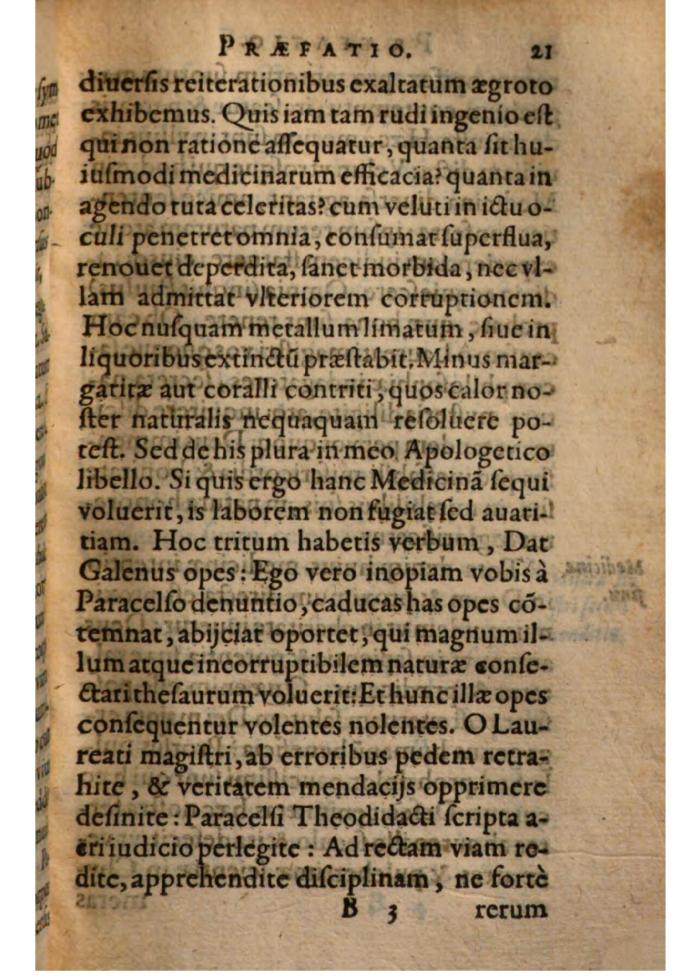 PRÆFATIO. 21
diuersis reiterationibus exaltatum ægroto
exhibemus. Quis iam tam rudi ingenio est
qui non ratione assequatur, quanta sit hu-
iusmodi medicinarum efficacia? quanta in
agendo tuta celeritas? cum veluti in ictu o-
culi penetret omnia, consumat superflua,
renouet deperdita, sanet morbida, nec vl-
lam admittat vlteriorem corruptionem.
Hoc nusquam metallum limatum, siue in
liquoribus extinctū præstabit. Minus mar-
garitæ aut coralli contriti, quos calor no-
ster naturalis nequaquam resoluere po-
test. Sed de his plura in meo Apologetico
libello. Si quis ergo hanc Medicinā sequi
voluerit, is laborem non fugiat sed auari-
tiam. Hoc tritum habetis verbum, Dat
Galenus opes: Ego vero inopiam vobis à
Paracelso denuntio, caducas has opes cō-
temnat, abijciat oportet, qui magnum il-
lum atque incorruptibilem naturæ conse-
ctari thesaurum voluerit: Et hunc illæ opes
consequentur volentes nolentes. O Lau-
reati magistri, ab erroribus pedem retra-
hite, & veritatem mendacijs opprimere
desinite: Paracelsi Theodidacti scripta a-
cri iudicio perlegite: Ad rectam viam re-
dite, apprehendite disciplinam, ne fortè
B 3 rerum